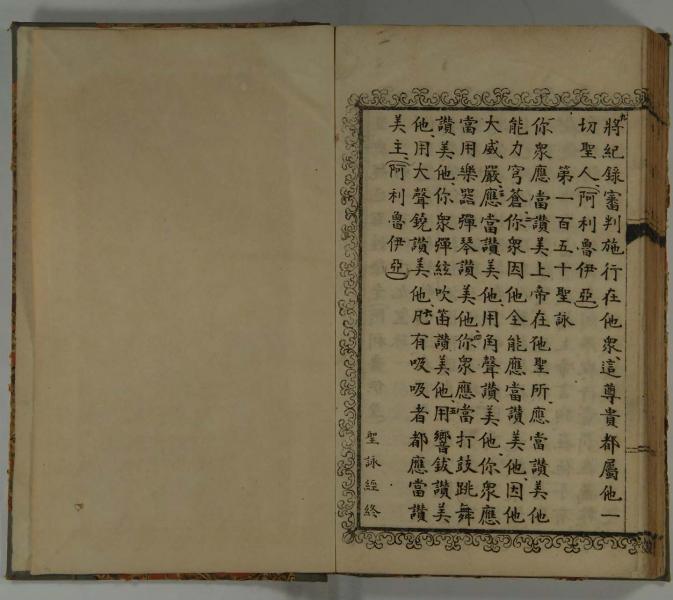 九將紀錄審判施行在他眾、這尊貴都屬他一
切聖人、(阿利魯伊亞)
第一百五十聖詠
你眾應當讚美上帝在他聖所、應當讚美他
能力穹蒼、二你眾因他全能應當讚美他、因他
大威嚴應當讚美他、三用角聲讚美他、你眾應
當用樂器彈琴讚美他、四你眾應當打鼓跳舞
讚美他、你眾彈絃吹笛讚美他、五用響鈸讚美
他、用大聲鐃讚美他、六凡有吸吸者都應當讚
美主、(阿利魯伊亞)
聖詠經終